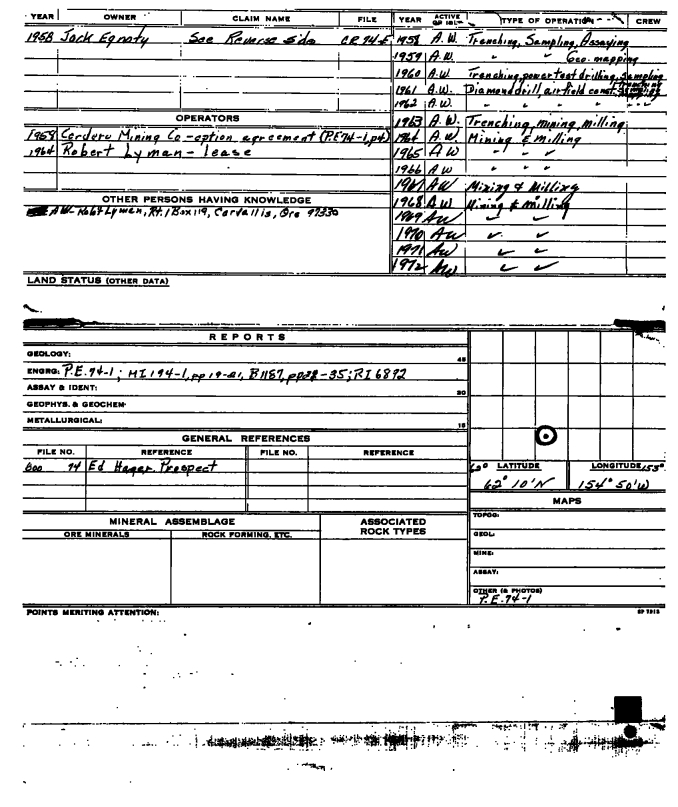 YEAR OWNER CLAIM NAME FILE YEAR ACTIVE OR IDL TYPE OF OPERATION CREW
1958 Jack Egnaty See Reverse side CR 74-5 1958 A.W. Trenching, Sampling, Assaying
1959 A.W. " " Geo. mapping
1960 A.W. Trenching, power tool drilling, sampling
1961 A.W. Diamond drill, airfield const. Sampling
1962 A.W. " " " " "
OPERATORS 1963 A.W. Trenching, mining, milling
1958 Cordero Mining Co - option agreement (P.E 74-1, p4) 1964 A.W Mining & Milling
1964 Robert Lyman - lease 1965 A W ✓ ✓ ✓
1966 A W ✓ ✓ ✓
OTHER PERSONS HAVING KNOWLEDGE 1967 AW Mining & Milling
AW- Robt Lyman, Rt. 1 Box 119, Corvallis, Ore 97330 1968 A.W Mining & milling
1969 AW ✓ ✓
1970 AW ✓ ✓
1971 AW ✓ ✓
1972 AW ✓ ✓
LAND STATUS (OTHER DATA)
REPORTS
GEOLOGY: 45
ENGRG: P.E. 74-1; MI 194-1, pp 19-21, B1187, pp 28-35; RI 6892
ASSAY & IDENT: 30
GEOPHYS. & GEOCHEM:
METALLURGICAL: 15
GENERAL REFERENCES
FILE NO. REFERENCE FILE NO. REFERENCE
74 Ed Hager Prospect
LATITUDE LONGITUDE 153°
62° 10'N 154° 50'W
MAPS
MINERAL ASSEMBLAGE ASSOCIATED ROCK TYPES
ORE MINERALS ROCK FORMING, ETC.
TOPOG:
GEOL:
MINE:
ASSAY:
OTHER (& PHOTOS)
P.E. 74-1
POINTS MERITING ATTENTION: